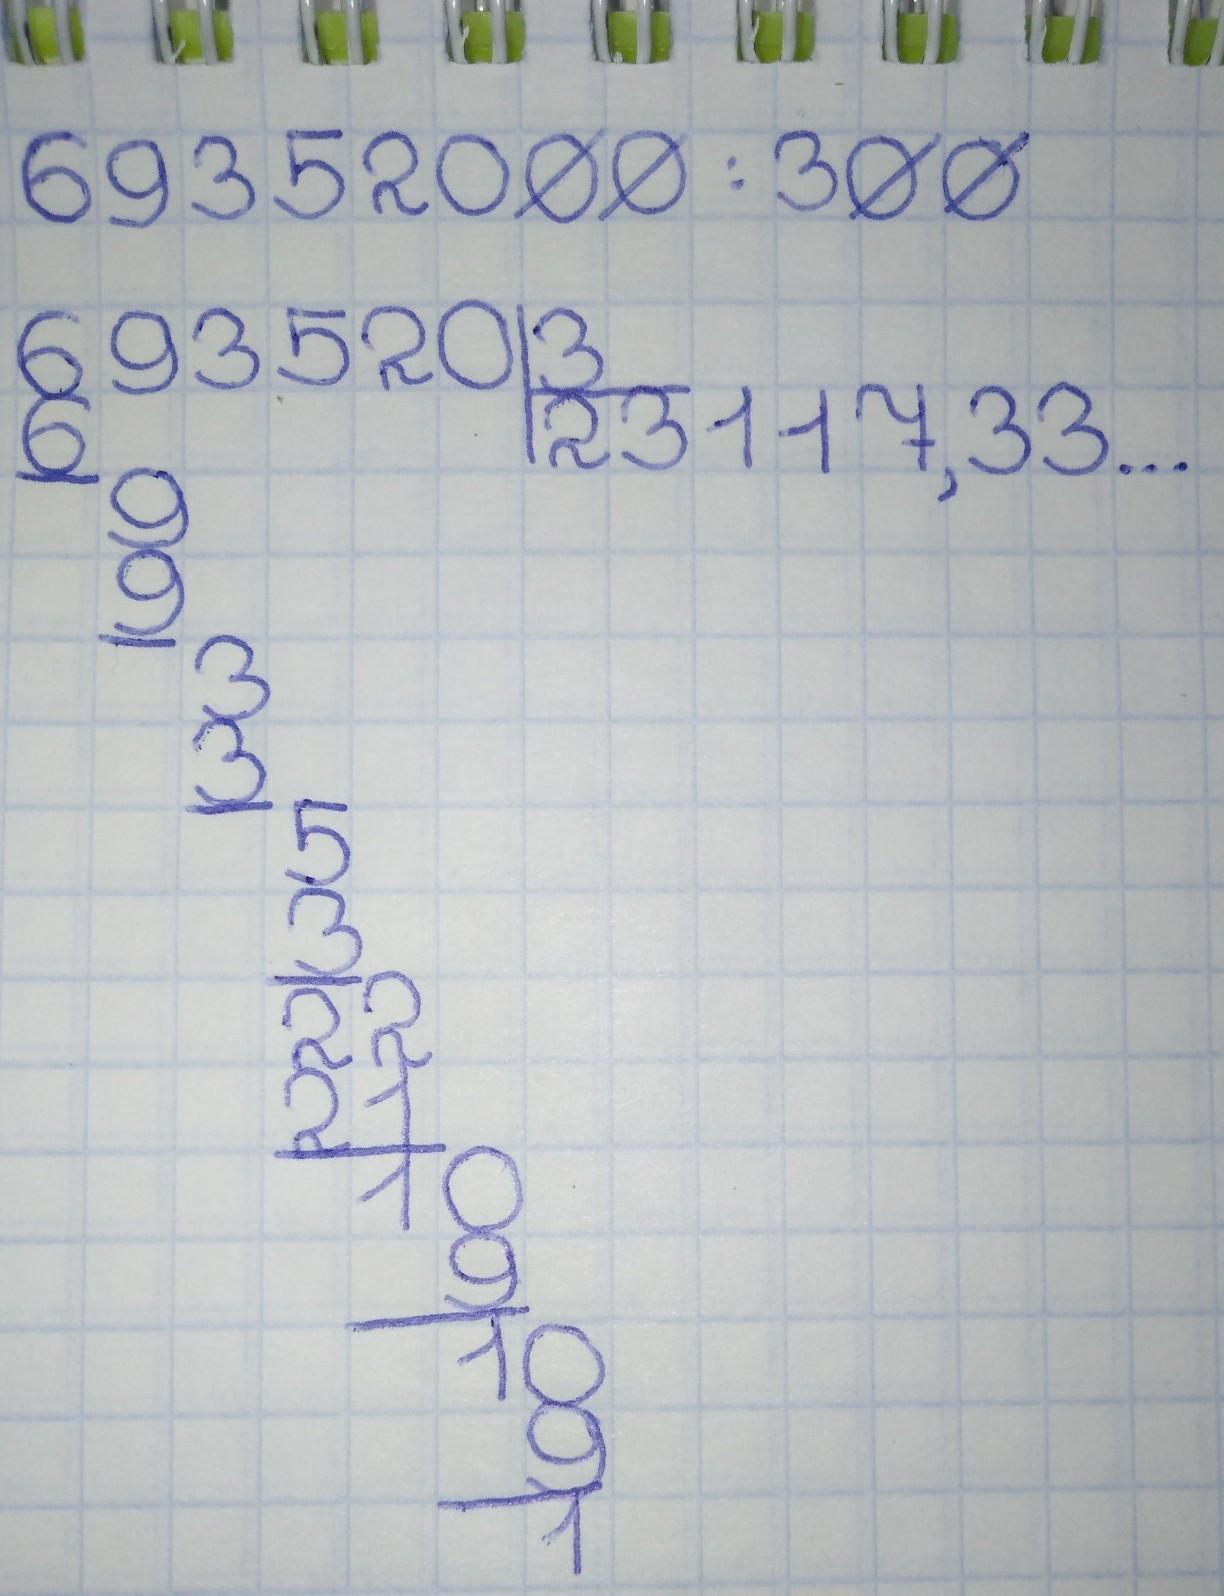 69352000 : 300
693520 3
6 23117,33...
9
9
3
3
5
3
22
21
10
9
10
9
1